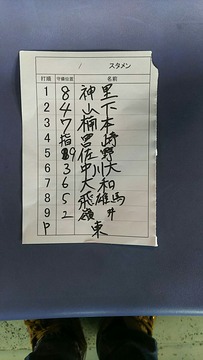 / スタメン
打順 守備位置 名前
1 8 神里
2 4 山下
3 7 楠本
4 指 宮﨑
5 9 佐野
6 3 中川大
7 6 大和
8 5 飛雄馬
9 2 嶺井
P 東